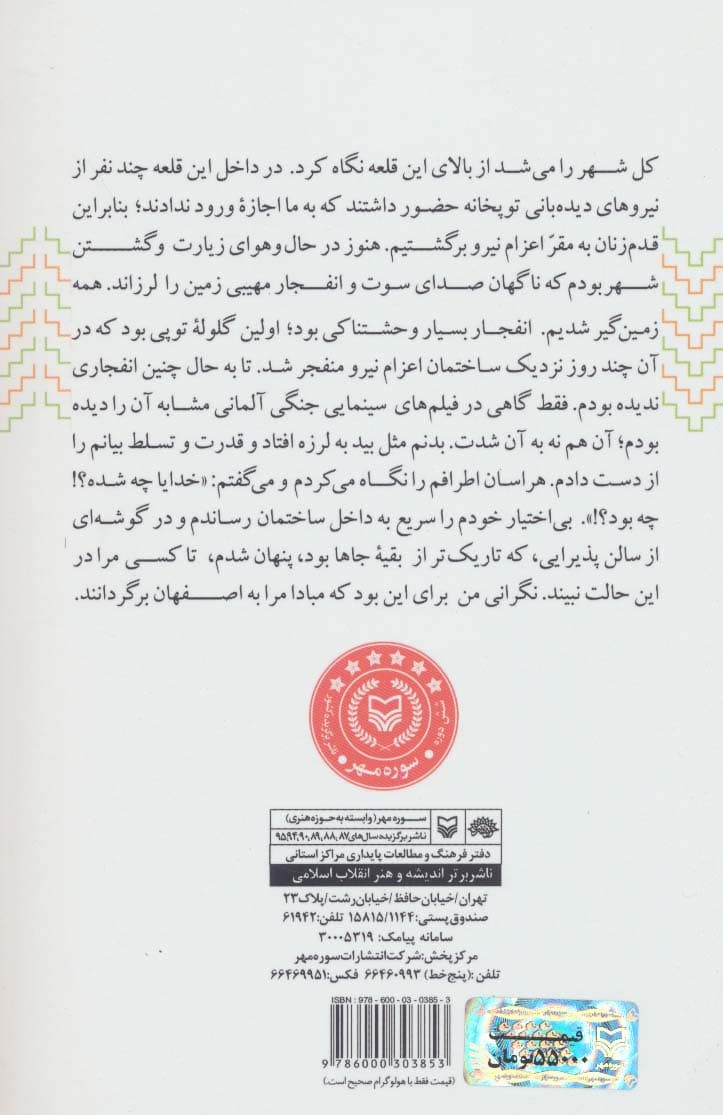 کل شهر را می‌شد از بالای این قلعه نگاه کرد. در داخل این قلعه چند نفر از
نیروهای دیده‌بانی توپخانه حضور داشتند که به ما اجازهٔ ورود ندادند؛ بنابراین
قدم‌زنان به مقرّ اعزام نیرو برگشتیم. هنوز در حال‌وهوای زیارت وگشتن
شهر بودم که ناگهان صدای سوت و انفجار مهیبی زمین را لرزاند. همه
زمین‌گیر شدیم. انفجار بسیار وحشتناکی بود؛ اولین گلولهٔ توپی بود که در
آن چند روز نزدیک ساختمان اعزام نیرو منفجر شد. تا به حال چنین انفجاری
ندیده بودم. فقط گاهی در فیلم‌های سینمایی جنگی آلمانی مشابه آن را دیده
بودم؛ آن هم نه به آن شدت. بدنم مثل بید به لرزه افتاد و قدرت و تسلط بیانم را
از دست دادم. هراسان اطرافم را نگاه می‌کردم و می‌گفتم: «خدایا چه شده؟!
چه بود؟!». بی‌اختیار خودم را سریع به داخل ساختمان رساندم و در گوشه‌ای
از سالن پذیرایی، که تاریک‌تر از بقیهٔ جاها بود، پنهان شدم، تا کسی مرا در
این حالت نبیند. نگرانی من برای این بود که مبادا مرا به اصفهان برگردانند.
شش دوره
ناشر برگزیده کشور
سوره مهر
سوره مهر (وابسته به حوزه هنری)
ناشر برگزیده سال‌های ۸۷، ۸۸، ۸۹، ۹۰، ۹۴و۹۵
دفتر فرهنگ و مطالعات پایداری مراکز استانی
ناشر برتر اندیشه و هنر انقلاب اسلامی
تهران/خیابان حافظ/خیابان رشت/پلاک ۲۳
صندوق پستی: ۱۵۸۱۵/۱۱۴۴ تلفن: ۶۱۹۴۲
سامانه پیامک: ۳۰۰۰۵۳۱۹
مرکز پخش: شرکت انتشارات سوره مهر
تلفن: (پنج خط) ۶۶۴۶۰۹۹۳ فکس: ۶۶۴۶۹۹۵۱
ISBN : 978 - 600 - 03 - 0385 - 3
9 786000 303853
(قیمت فقط با هولوگرام صحیح است.)
قیمت
۵۵۰۰۰ تومان